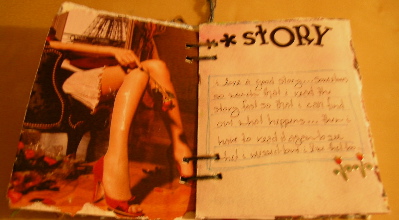 * STORY
I love a good story... Sometimes
so much that I read the
story fast so that I can find
out what happens... then I
have to read it again to see
what I missed